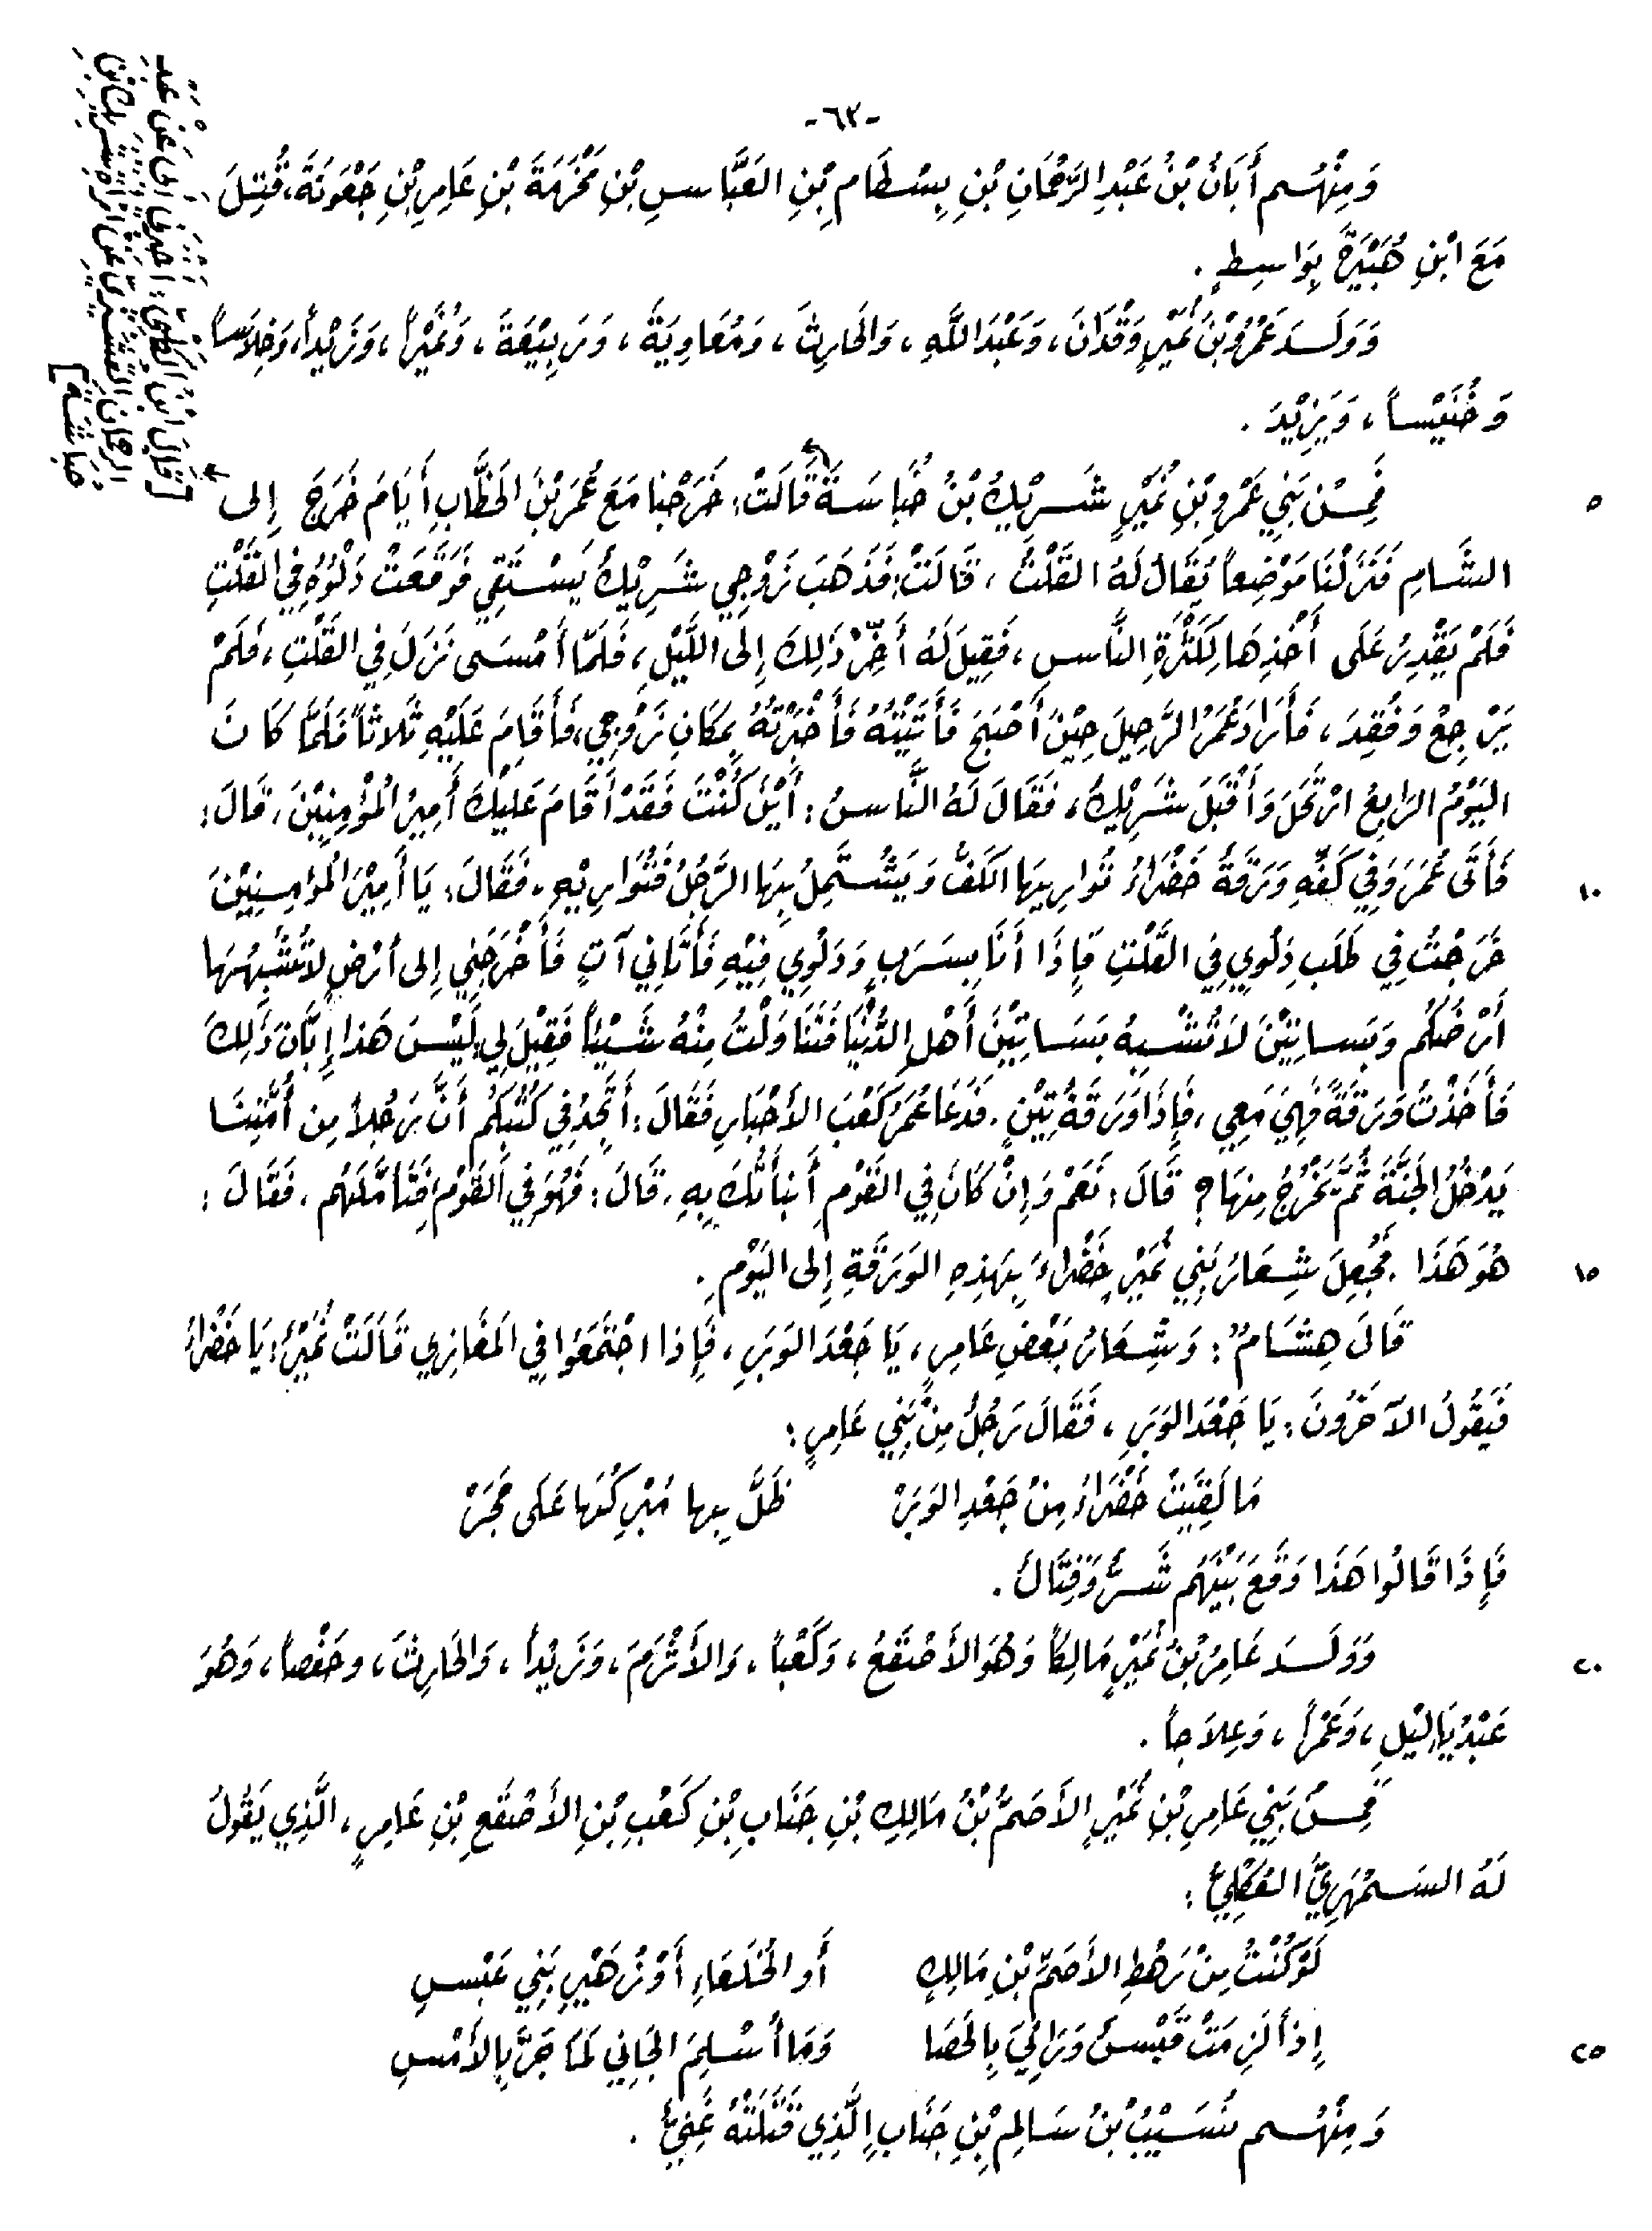 -٦٣-
وَمِنْهُم أَبَانُ بْنُ عَبْدِ الرَّحْمَانِ بْنِ بِسْطَامِ بْنِ العَبَّاسِ بْنِ مَخْرَمَةَ بْنِ عَامِرِ بْنِ جَعْوَنَةَ، قُتِلَ
مَعَ ابْنِ هُبَيْرَةَ بِوَاسِطٍ .
وَوَلَدَ عَمْرُو بْنُ نُمَيْرٍ وَقْدَانَ، وَعَبْدَ اللَّهِ، وَالحَارِثَ، وَمُعَاوِيَةَ، وَرَبِيْعَةَ، وَنُمَيْراً، وَزَيْداً، وَخِلَاساً
وَخُنَيْساً، وَيَزِيْدَ .
فَمِنْ بَنِي عَمْرِو بْنِ نُمَيْرٍ شَرِيْكُ بْنُ خُبَاسَةَ قَالَتْ: خَرَجْنَا مَعَ عُمَرَ بْنَ الخَطَّابِ أَيَامَ خَرَجَ إِلى
[قَالَ ابْنُ الكَلْبِيِّ: أخبرنا أبي عَنْ عَبْدِ
الرحمان القشيري عَنِ امْرَأةِ شَرِيْكِ بْنِ
خباشة]
٥
الشَّامِ فَنَزَلْنَا مَوْضِعاً يُقَالُ لَهُ القَلْتُ، قَالَتْ: فَذَهَبَ زَوْجِي شَرِيْكُ يَسْتَقِي فَوَقَعَتْ دَلْوُهُ فِي القَلْتِ
فَلَمْ يَقْدِرْ عَلَى أَخْذِهَا لِكَثْرَةِ النَّاسِ، فَقِيلَ لَهُ أَخِّرْ ذَلِكَ إِلَى اللَّيْلِ، فَلَمَّا أَمْسَى نَزَلَ فِي القَلْتِ، فَلَمْ
يَرْجِعْ وَفُقِدَ، فَأَرَادَ عُمَرُ الرَّحِيلَ حِيْنَ أَصْبَحَ فَأَتَيْتُهُ فَأَخْبَرْتُهُ بِمَكَانِ زَوْجِي، فَأَقَامَ عَلَيْهِ ثَلَاثَاً فَلَمَّا كَانَ
اليَوْمُ الرَابِعُ ارْتَحَلَ وَأَقْبَلَ شَرِيْكُ، فَقَالَ لَهُ النَّاسُ: أَيْنَ كُنْتَ فَقَدْ أَقَامَ عَلَيْكَ أَمِيرُ المُؤْمِنِيْنَ، قَالَ:
فَأَتَى عُمَرَ وَفِي كَفِّهِ وَرَقَةٌ خَضْرَاءُ تُوارِيهَا الكَفُّ وَيَشْتَمِلُ بِهَا الرَّجُلُ فَتُوَارِيْهِ، فَقَالَ: يَا أَمِيْرَ المُؤمِنِيْنَ
١٠
خَرَجْتُ فِي طَلَبِ دَلْوِي فِي القَلْتِ فَإِذَا أَنَا بِسَرَبٍ وَدَلْوِي فِيْهِ فَأَتَانِي آتٍ فَأَخْرَجَنِي إِلى أَرْضٍ لَا تُشْبِهُهَا
أَرْضُكُم وَبَسَاتِيْنَ لَا تُشْبِهُ بَسَاتِيْنَ أَهْلِ الدُّنْيَا فَتَنَاوَلْتُ مِنْهُ شَيْئاً فَقِيْلَ لِي لَيْسَ هَذا إِبَّانَ ذَلِكَ
فَأَخَذْتُ وَرَقَةً فَهِيَ مَعِي، فَإِذَا وَرَقَةُ تِيْنٍ. فَدَعَا عُمَرُ كَعْبَ الأَحْبَارِ فَقَالَ: أَتَجِدُ فِي كُتُبِكُم أَنَّ رَجُلاً مِن أُمَّتِنَا
يَدْخُلُ الجَنَّةَ ثُمَّ يَخْرُجُ مِنهَا؟ قَالَ: نَعَمْ وَإِنْ كَانَ فِي القَوْمِ أَنبَأتُكَ بِهِ، قَالَ: فَهُوَ فِي القَوْمِ فَتَأَمَّلَهُم، فَقَالَ:
هُوَ هَذَا . فَجُعِلَ شِعَارُ بَنِي نُمَيْرٍ خَضْرَاءَ بِهَذِهِ الوَرَقَةِ إِلى اليَوْمِ .
١٥
قَالَ هِشَامٌ: وَشِعَارُ بَعْضِ عَامِرٍ، يَا جَعْدَ الوَبَرِ، فَإِذا اجْتَمَعُوا فِي المَغَازِي قَالَتْ نُمَيْرٌ: يَا خَضْرَاءُ
فَيَقُولُ الآخَرُونَ: يَا جَعْدَ الوَبَرِ، فَقَالَ رَجُلٌ مِنْ بَنِي عَامِرٍ:
مَا لَقِيَتْ خَضْرَاءُ مِنْ جَعْدِ الوَبَرْ ظَلَّ بِها مَبْرِكُها عَلَى حَجَرْ
فَإِذَا قَالُوا هَذَا وَقَعَ بَيْنَهُم شَرٌّ وَقِتَالٌ .
وَوَلَدَ عَامِرُ بْنُ نُمَيْرٍ مَالِكاً وَهُوَ الأَصْقَعُ، وَكَعْباً، وَالأَثْرَمَ، وَزَيْداً، وَالحَارِثَ، وحَفْصاً، وَهُوَ
٢٠
عَبْدُ يَالِيْلِ، وَعَمْراً، وَعِلَاجاً .
فَمِنْ بَنِي عَامِرِ بْنِ نُمَيْرٍ الأَصَمُّ بْنُ مَالِكِ بْنِ جَنَابِ بْنِ كَعْبِ بْنِ الأَصْقَعِ بْنِ عَامِرٍ، الَّذِي يَقُولُ
لَهُ السَمْهَرِيُّ العُكْلِيُّ:
لَوْ كُنْتُ مِنْ رَهْطِ الأَصَمِّ بْنِ مَالِكٍ أَو الخُلَعَاءِ أَوْ زُهَيْرِ بَنِي عَبْسِ
إِذاً لَزِمَتْ قَيْسٌ وَرَائِيَ بِالحَصَا وَمَا أُسْلِمَ الجَانِي لَمَا جَرَّ بِالأَمْسِ
٢٥
وَمِنْهُم شَبِيْبُ بْنُ سَالِمِ بْنِ جَنَابِ الَّذِي قَتَلَتْهُ غَنِيٌّ .